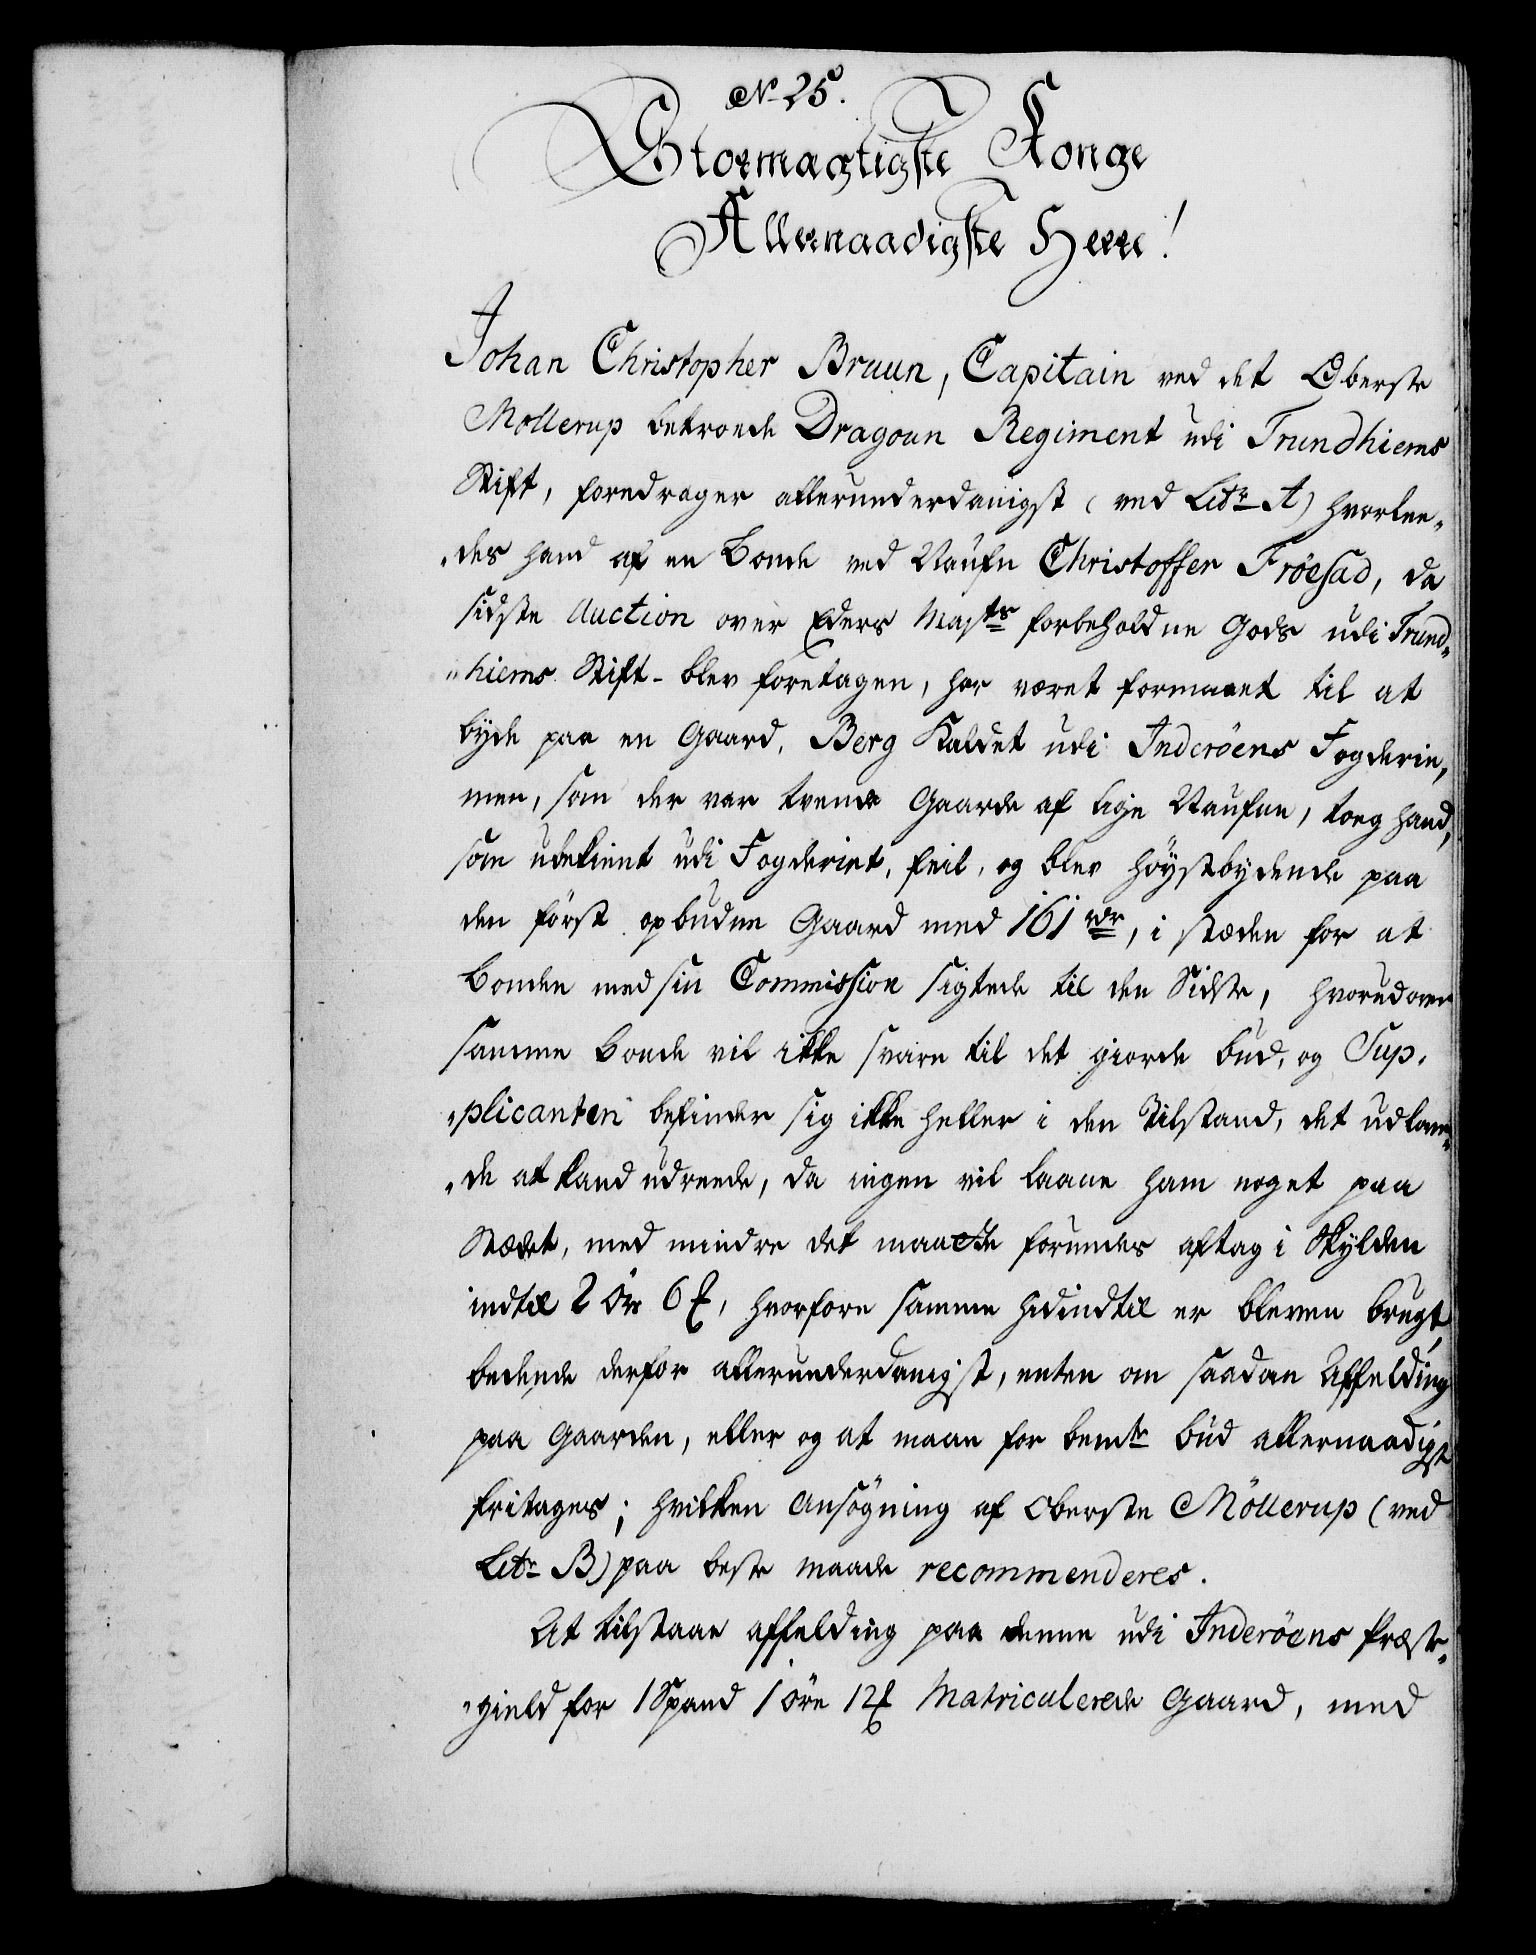 No 25.
Stormægtigste Konge
Allernaadigste Herre!
Johan Christopher Bruun, Capitain ved det Oberste
Mollerup betroede Dragoun Regiment udi Trundhiems
Stift, foredrager allerunderdanigst (ved Litr A) hvorlee„
„des hand af en Bonde ved Nafn Christoffer Fröesad, da
sidste Auction over Eders Majts forbeholdne Gods udi Trund„
„hiems Stift blev foretagen, har været formaaet til at
byde paa en Gaard, Berg Kaldet udi Inderöens Fogderie,
men, som der var tvende Gaarde af lige Nafne, toeg hand,
som ubekient udi Fogderiet, feil, og blev höystbydende paa
den först opbudne Gaard med 161 rdr, i stæden for at
Bonden med sin Commission sigtede til den Sidste, hvorudover
samme Bonde vil ikke svare til det giorde bud, og Sup„
„plicanten befinder sig ikke heller i den Tilstand, det udlov„
„de at kand udreede, da ingen vil laane ham noget paa
Stædet, med mindre det maatte forundes aftag i Skylden
indtil 2 Öre 6 ℔, hvorfore samme hidindtil er bleven brugt,
bedende derfor allerunderdanigst, enten om saadan Affelding
paa Gaarden, eller og at maae for bemte bud allernaadigst
fritages; hvilken Ansögning af Oberste Möllerup (ved
Litr B) paa beste maade recommenderes.
At tilstaae affelding paa denne udi Inderöens Præste„
„gield for 1 Spand 1 öre 12 ℔ Matriculerede Gaard, med